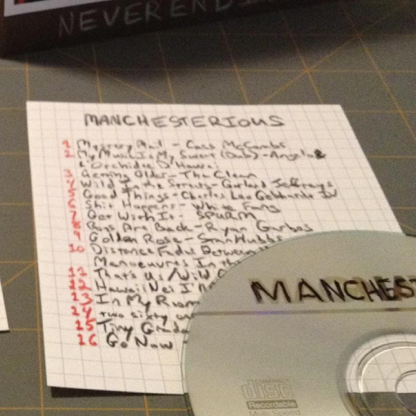 NEVERENDI
MANCHESTERIOUS
1 Mystery Mail - Cass McCombs
2 My Music Is My Sweet (Dub) - Angelo &
Orchidee D'Hawai
3 Getting Older - The Clean
4 Wild in the Streets - Garland Jeffreys
5 Good Things - Charles Leo Gebhardt IV
6 Shit Happens - White Fang
7 Get With Is - SPURM
8 Boys Are Back - Ryan Garbes
9 Golden Rose - Stan Hubbs
10 Distance Fades Between
Manoeuvres In the
11 That's Us/Wild
12 Hawaii Nei I'
13 In My Room
14 two sixty
15 Tiny
16 Go Now
MANCHEST
disc
Recordable